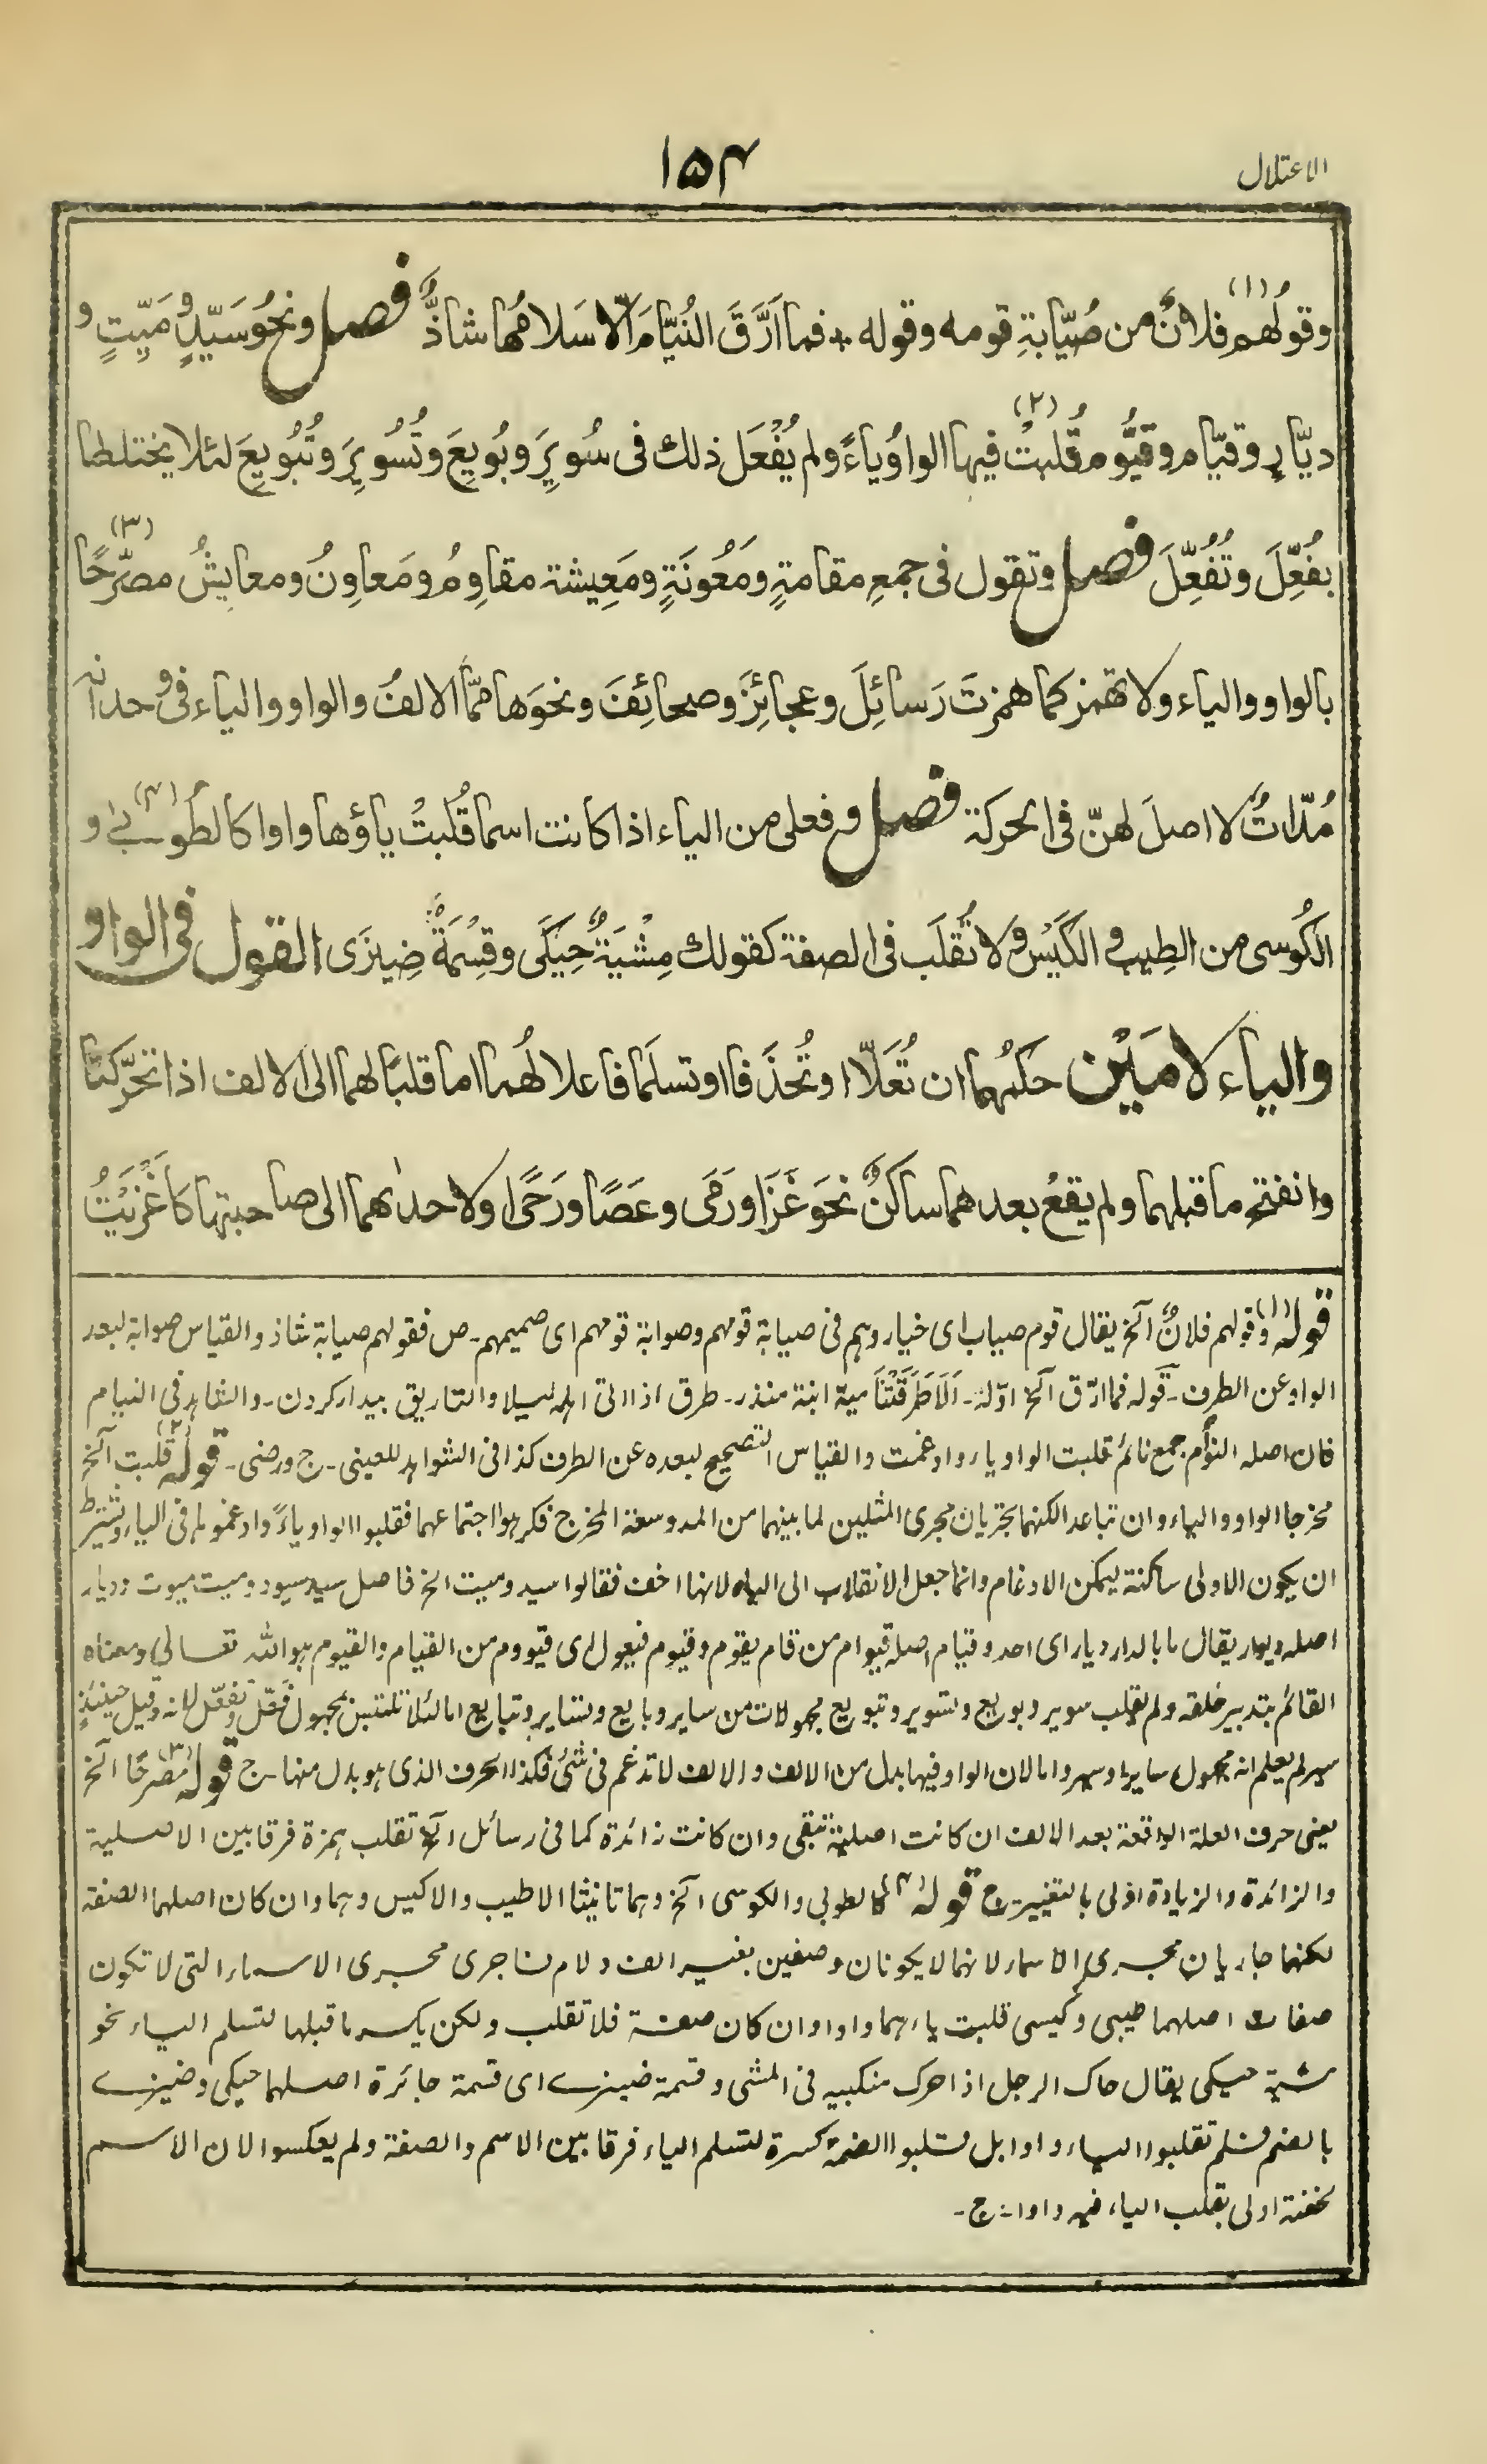 الاعتلال
١٥۴
وقولُهم (١) فلانٌ من صُيّابةِ قومه وقوله ٭ فما اَرَّقَ النُيّامَ اِلّا سَلامُها شاذٌّ فصل ونحوُ سَيّدٍ ومَيّتٍ و
ديّارٍ وقيّام وقيُّوم قُلبتْ (٢) فيها الواوُ ياءً ولم يُفْعَل ذلك فى سُوِيِرَ وبُويِعَ وتُسُويِرَ وتُبُويِعَ لئلا يختلطا
بفُعِّلَ وتُفُعِّلَ فصل وتقول فى جمعِ مقامةٍ ومَعُونَةٍ ومَعِيشة مقاوِمُ ومَعاوِنُ ومعايِشُ مصرِّحًا (٣)
بالواو والياء ولا تهمز كما همزتَ رَسائِلَ وعجائِزَ وصحائِفَ ونحوَها ممّا الالفُ والواو والياء فى وحدانه
مُدّاتٌ لا اصلَ لهنّ فى الحركة فصل وفعلى من الياء اذا كانت اسما قُلبتْ ياؤها واوا كالطُوبى (۴) و
الكُوسى من الطِيبِ والكَيْسِ ولا تُقلَب فى الصفة كقولك مِشْيَةٌ حِيَكَى وقِسْمَةٌ ضِيزَى القول فى الواو
والياء لامَيْن حكمُهما ان تُعَلّا او تُحذَفا او تسلَما فاعلالُهما اما قلبًا لهما الى الالف اذا تحرّكتا
وانفتح ما قبلهما ولم يقعْ بعدهما ساكنٌ نحوَ غَزَا ورَمَى وعَصًا ورَحًى او لاحدٰهما الى صاحبتها كاَغْزَيْتُ
قوله (١) وقولهم فلانٌ آلخ يقال قوم صياب اى خيار وہم فى صيابة قومهم وصوابة قومهم اى صميمهم۔ ص فقولهم صيابة شاذ والقياس صوابة لبعد
الواو عن الطرف۔ قوله فما ارّق آلخ اوّله۔ اَلَا طَرَقَتْنَا مية ابنة منذر۔ طرق اذا اتى اہله ليلا والتاريق بيدار كردن۔ والشاہد فى النيام
فان اصله النوّم جمع نائم قلبت الواو ياء وادغمت والقياس التصحيح لبعده عن الطرف كذا فى الشواہد للعينى۔ ج ورضى۔ قوله (٢) قلبت آلخ
مخرجا الواو والياء وان تباعدا لكنهما يجريان مجرى المثلين لما بينهما من المد وسعة المخرج فكرہوا اجتماعهما فقلبوا الواو ياءً وادغموہا فى الياء وتشترط
ان يكون الاولى ساكنة ليمكن الادغام وانما جعل الانقلاب الى الياء لانها اخف فقالوا سيد وميت الخ فاصل سيد سيود وميت ميوت وديار
اصله ديوار يقال ما بالدار ديار اى احد وقيام اصله قيوام من قام يقوم وقيوم فيعول اى قيووم من القيام والقيوم ہو الله تعالىٰ ومعناه
القائم بتدبير خلقه ولم تقلب سوير وبويع وتسوير وتبويع مجهولات من ساير وبايع وتساير وتبايع اما لئلا تلتبس بمجهول فَعّل وتفعّل لانه لو قيل حينئذٍ
سير لم يعلم انه مجهول ساير او سير واما لان الواو فيها بدل من الالف والالف لا تدغم فى شئ فكذا الحرف الذى ہو بدل منها۔ ج قوله (٣) مصرحًا آلخ
يعنى حرف العلة الواقعة بعد الالف ان كانت اصلية تبقى وان كانت زائدة كما فى رسائل آلخ تقلب ہمزة فرقا بين الاصلية
والزائدة والزيادة اولى بالتغيير۔ ج قوله (۴) كالطوبى والكوسى آلخ وہما تانيثا الاطيب والاكيس وہما وان كان اصلهما الصفة
لكنهما جاريان مجرى الاسماء لانهما لا يكونان وصفين بغير الف ولام فاجرى مجرى الاسماء التى لا تكون
صفات اصلهما طيبى وكيسى قلبت ياءہما واوا وان كان صفة فلا تقلب ولكن يكسر ما قبلها لتسلم الياء نحو
مشية حيكى يقال حاك الرجل اذا حرك منكبيه فى المشى وقسمة ضيزے اى قسمة جائرة اصلهما حيكى وضيزے
بالضم فلم تقلبوا الياء واوا بل قلبوا الضمة كسرة لتسلم الياء فرقا بين الاسم والصفة ولم يعكسوا لان الاسم
لخفته اولى بقلب الياء فيه واوا ؛ ج۔